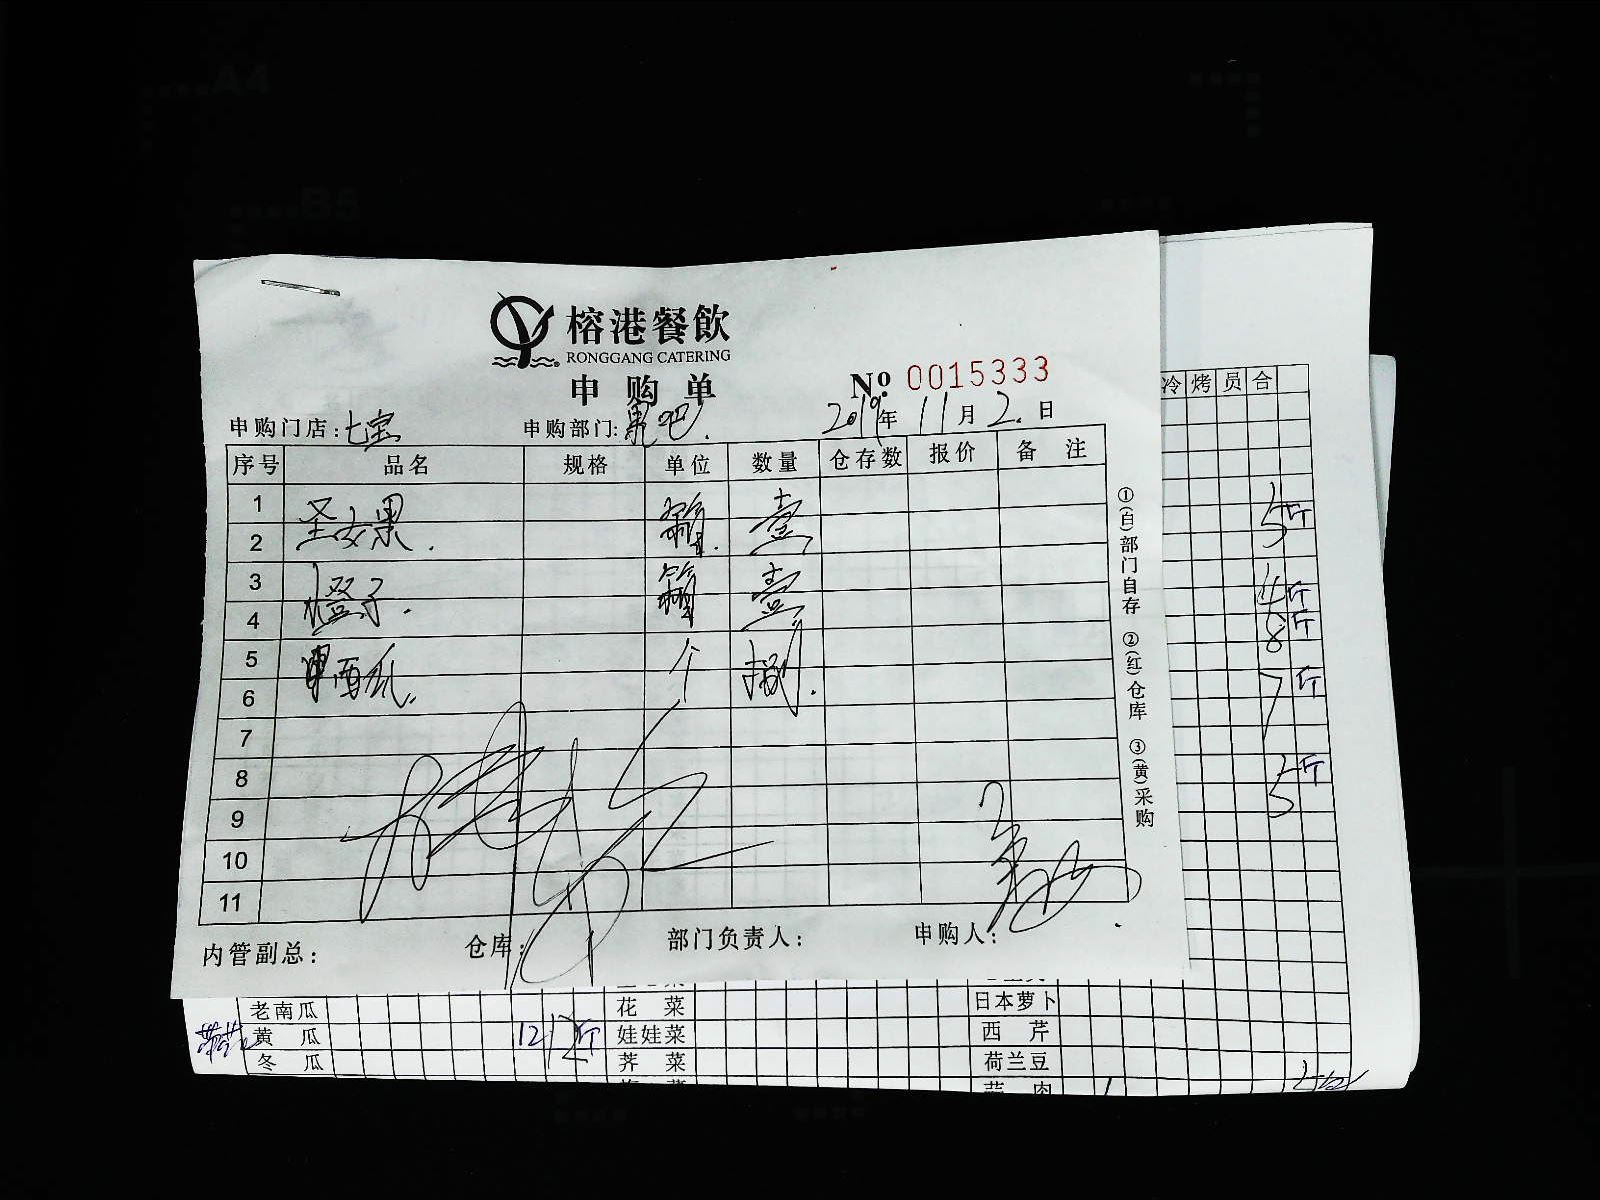 榕港餐飲
RONGGANG CATERING
申购单
№ 0015333
申购门店:七宝 申购部门:果吧. 2019年11月2.日
序号 品名 规格 单位 数量 仓存数 报价 备 注
1
圣女果. 箱. 壹
2
3
橙子. 箱 壹
4
5
黑西瓜. 个 捌.
6
7
8
9
10
11
内管副总: 仓库: 部门负责人: 申购人:
①(白)部门自存 ②(红)仓库 ③(黄)采购
冷 烤 员 合
5斤
4斤
8斤
7斤
5斤
老南瓜 花 菜 日本萝卜
黄 瓜 12 12斤 娃娃菜 西 芹
冬 瓜 荠 菜 荷兰豆